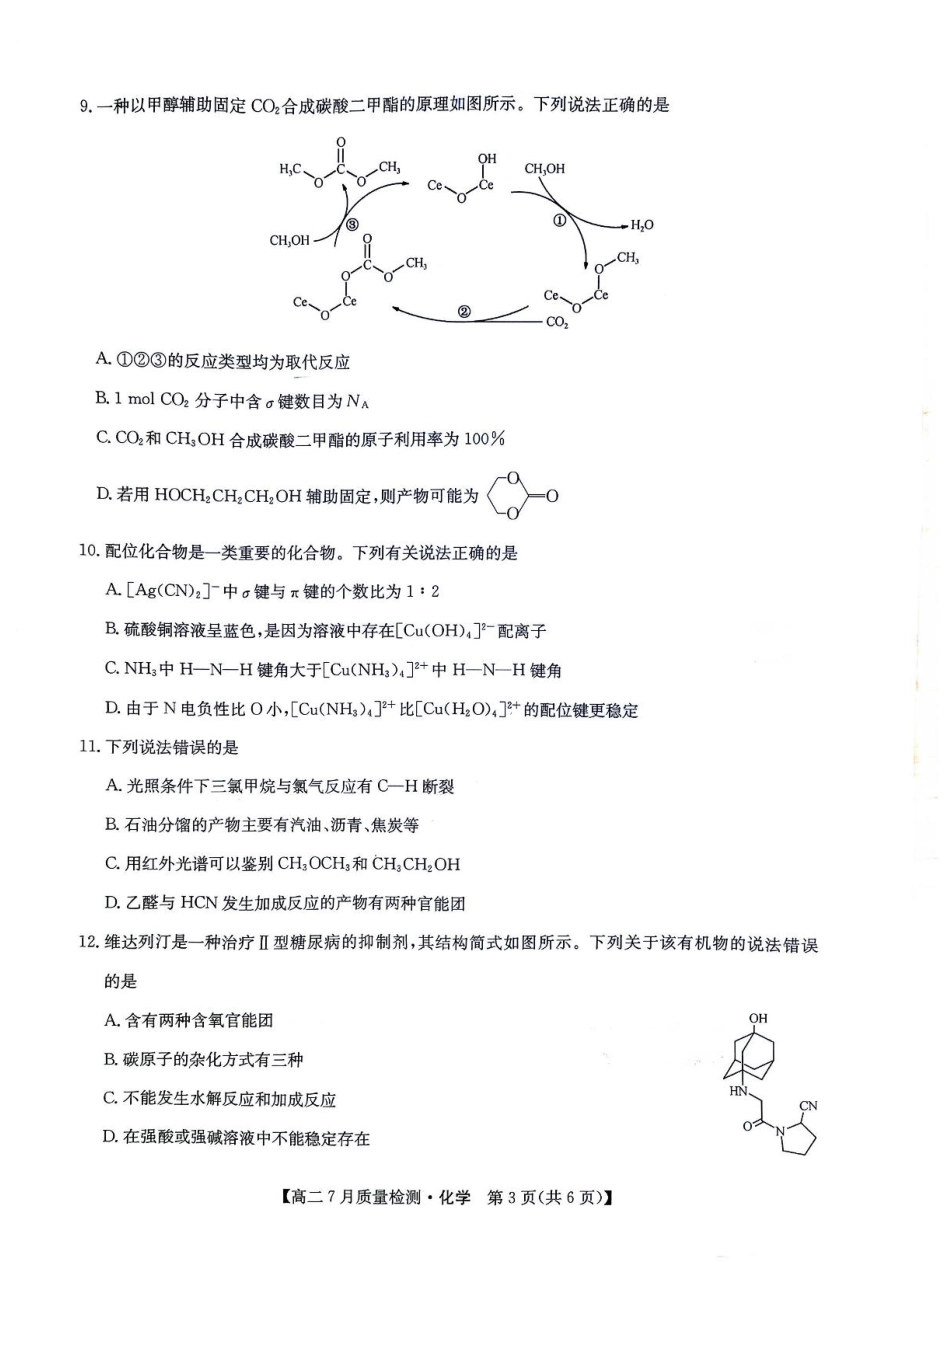 9. 一种以甲醇辅助固定 CO₂合成碳酸二甲酯的原理如图所示。下列说法正确的是
O
H₃C O C O CH₃
OH
Ce O Ce
CH₃OH
①
H₂O
③
CH₃OH
O
O C O CH₃
Ce O Ce
②
O CH₃
Ce O Ce
CO₂
A. ①②③的反应类型均为取代反应
B. 1 mol CO₂ 分子中含 σ 键数目为 N_A
C. CO₂和 CH₃OH 合成碳酸二甲酯的原子利用率为 100%
D. 若用 HOCH₂CH₂CH₂OH 辅助固定,则产物可能为 O O =O
10. 配位化合物是一类重要的化合物。下列有关说法正确的是
A. [Ag(CN)₂]⁻中 σ 键与 π 键的个数比为 1∶2
B. 硫酸铜溶液呈蓝色,是因为溶液中存在[Cu(OH)₄]²⁻配离子
C. NH₃中 H—N—H 键角大于[Cu(NH₃)₄]²⁺中 H—N—H 键角
D. 由于 N 电负性比 O 小,[Cu(NH₃)₄]²⁺比[Cu(H₂O)₄]²⁺的配位键更稳定
11. 下列说法错误的是
A. 光照条件下三氯甲烷与氯气反应有 C—H 断裂
B. 石油分馏的产物主要有汽油、沥青、焦炭等
C. 用红外光谱可以鉴别 CH₃OCH₃和 CH₃CH₂OH
D. 乙醛与 HCN 发生加成反应的产物有两种官能团
12. 维达列汀是一种治疗Ⅱ型糖尿病的抑制剂,其结构简式如图所示。下列关于该有机物的说法错误
的是
A. 含有两种含氧官能团
B. 碳原子的杂化方式有三种
C. 不能发生水解反应和加成反应
D. 在强酸或强碱溶液中不能稳定存在
OH
HN
CN
O N
【高二 7 月质量检测·化学 第 3 页(共 6 页)】